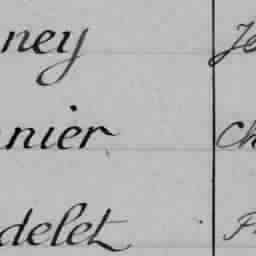 ney Je
nier Ch
delet